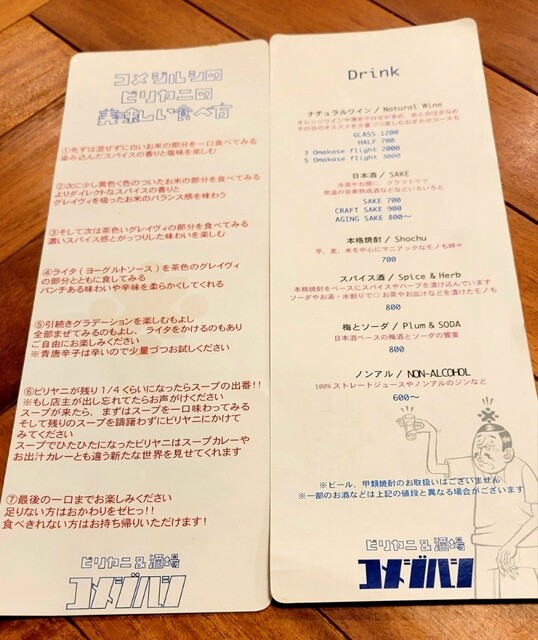 コメジルシの
ビリヤニの
美味しい食べ方
①先ずは混ぜずに白いお米の部分を一口食べてみる
染み込んだスパイスの香りと塩味を楽しむ
②次に少し黄色く色のついたお米の部分を食べてみる
よりダイレクトなスパイスの香りと
グレイヴィを吸ったお米のバランス感を味わう
③そして次は茶色いグレイヴィの部分を食べてみる
濃いスパイス感とがっつりした味わいを楽しむ
④ライタ(ヨーグルトソース)を茶色のグレイヴィ
の部分とともに食してみる
パンチある味わいや辛味を柔らかくしてくれる
⑤引続きグラデーションを楽しむもよし
全部まぜてみるのもよし、ライタをかけるのもあり
ご自由にお楽しみください
※青唐辛子は辛いので少量づつお試しください
⑥ビリヤニが残り1/4くらいになったらスープの出番!!
※もし店主が出し忘れてたらお声がけください
スープが来たら、まずはスープを一口味わってみる
そして残りのスープを躊躇わずにビリヤニにかけて
みてください
スープでひたひたになったビリヤニはスープカレーや
お出汁カレーとも違う新たな世界を見せてくれます
⑦最後の一口までお楽しみください
足りない方はおかわりをゼヒっ!!
食べきれない方はお持ち帰りいただけます!
ビリヤニ&酒場
コメジルシ
Drink
ナチュラルワイン / Natural Wine
オレンジワインや薄めやロゼが多め、赤と白は少なめ
その日のオススメを少量づつ楽しむおまかせコースも
GLASS 1200
HALF 700
3 Omakase flight 2000
5 Omakase flight 3000
日本酒 / SAKE
冷酒やお燗に、クラフトサケ
常温の自家熟成酒などなどいろいろと
SAKE 700
CRAFT SAKE 900
AGING SAKE 800～
本格焼酎 / Shochu
芋、麦、米を中心にマニアックなモノも時々
700
スパイス酒 / Spice & Herb
本格焼酎をベースにスパイスやハーブを漬け込んでいます
ソーダやお湯・水割りで〇お茶やお出汁などを漬けたモノも
800
梅とソーダ / Plum & SODA
日本酒ベースの梅酒とソーダの饗宴
800
ノンアル / NON-ALCOHOL
100%ストレートジュースやノンアルのジンなど
600～
※ビール、甲類焼酎のお取扱いはございません
※一部のお酒などは上記の値段と異なる場合がございます
ビリヤニ&酒場
コメジルシ